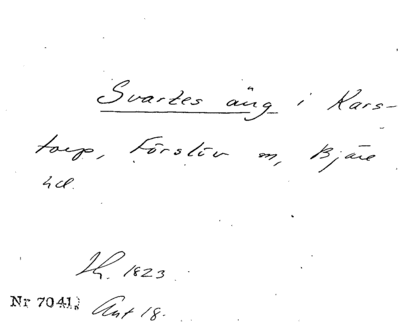 Svartes äng i Kars-
torp, Förslöv sn, Bjäre
hd.
Sk. 1823
Nr 7041; Ant 18.